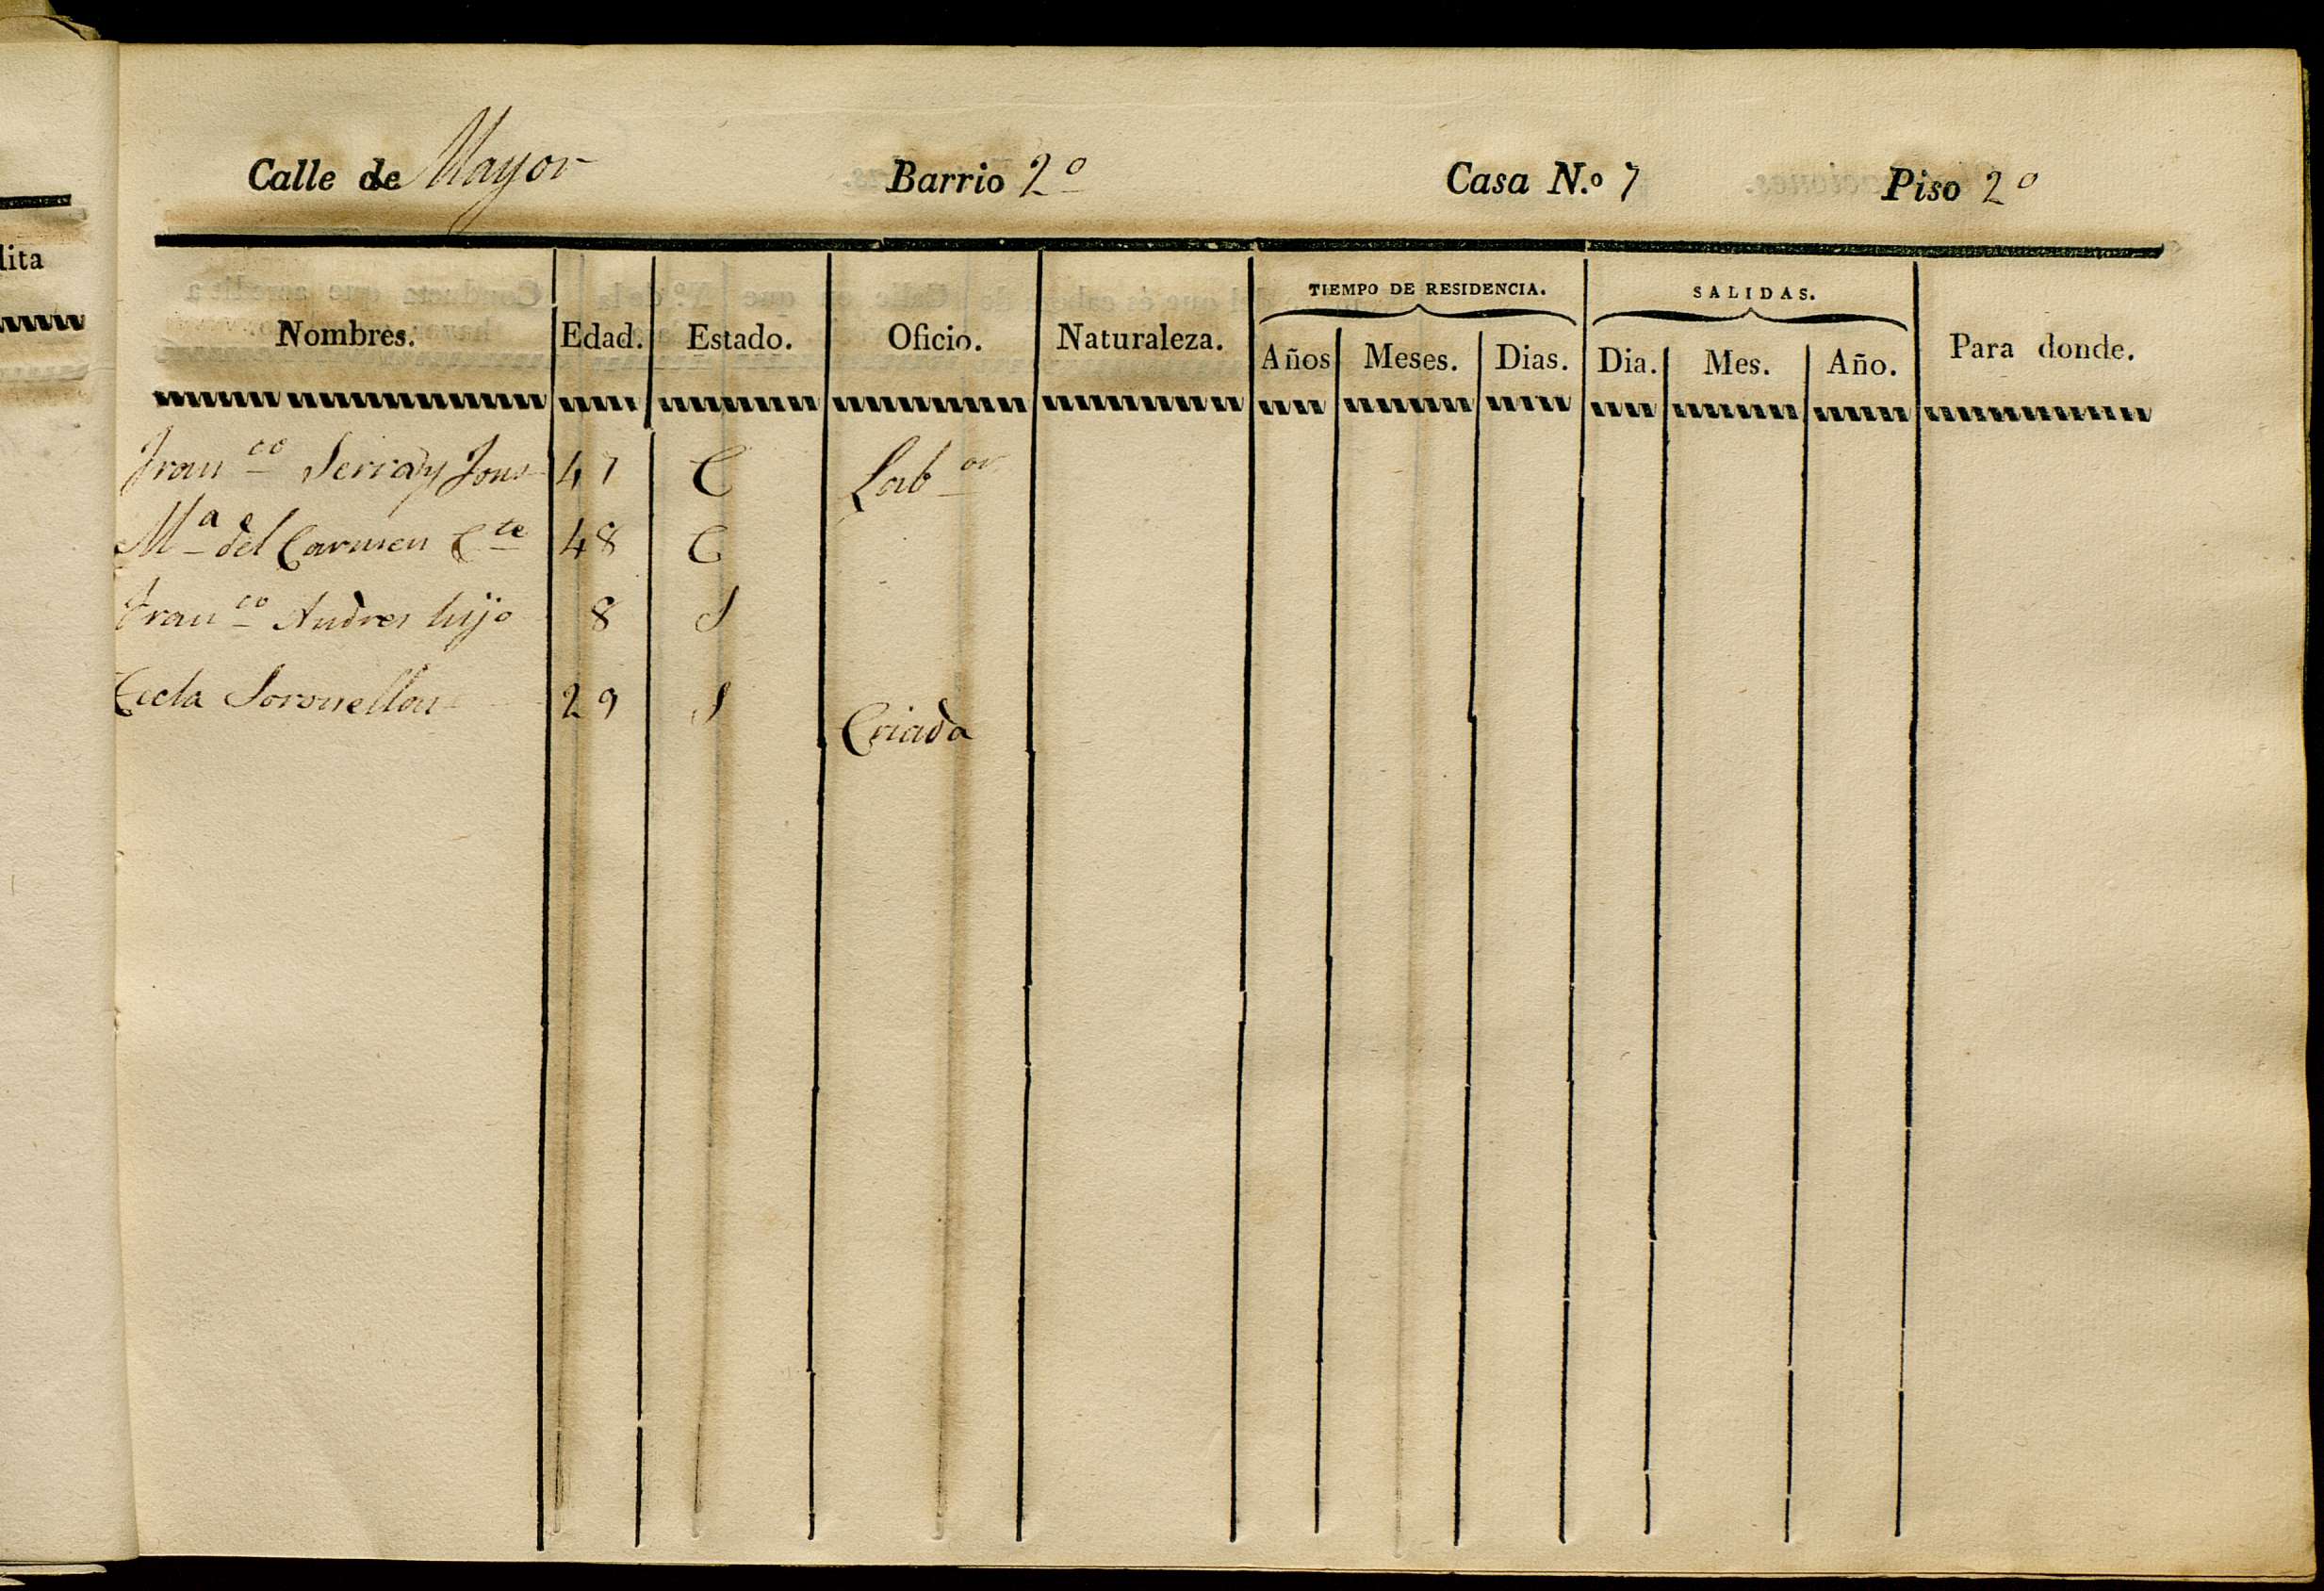 Calle de Mayor Barrio 2º Casa N.º 7 Piso 2º
lita
TIEMPO DE RESIDENCIA. SALIDAS.
Nombres. Edad. Estado. Oficio. Naturaleza. Años Meses. Dias. Dia. Mes. Año. Para donde.
Franco Serra y 47 C Labor
Mª del Carmen Cte 48 C
Franco Andres hijo 8 S
Tecla 29 S
Criada